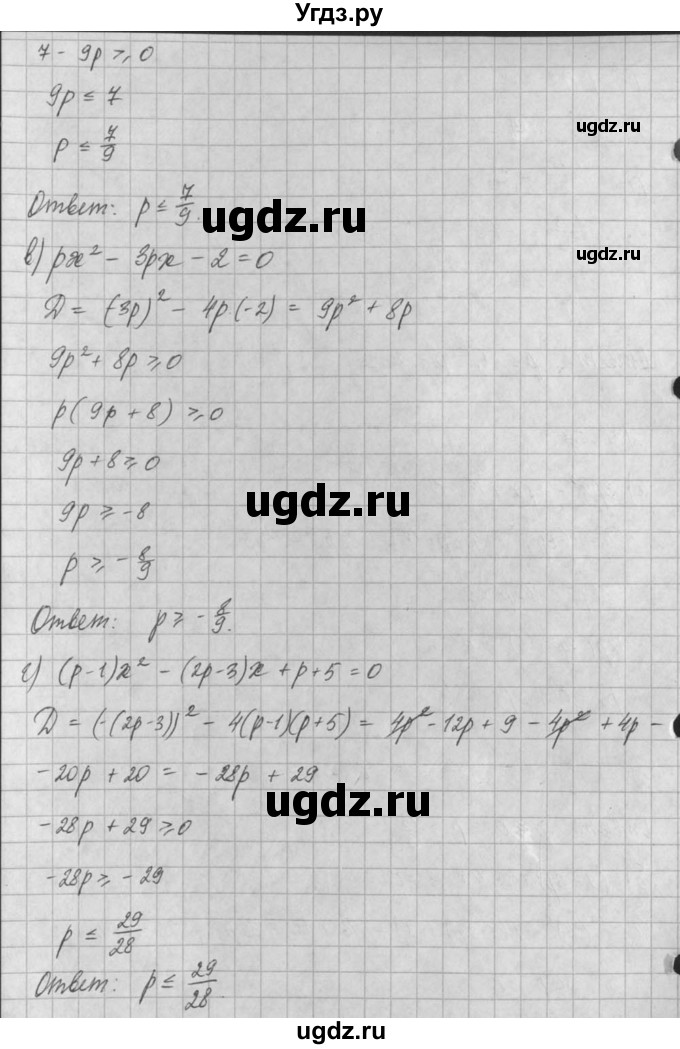 Угдз.ру
7 - 9p ⩾ 0
9p ≤ 7
ugdz.ru
p ≤ 7/9
Ответ: p ≤ 7/9.
ugdz.ru
в) px² - 3px - 2 = 0
ugdz.ru
D = (-3p)² - 4p·(-2) = 9p² + 8p
9p² + 8p ⩾ 0
p(9p + 8) ⩾ 0
9p + 8 ⩾ 0
ugdz.ru
9p ⩾ -8
p ⩾ - 8/9
Ответ: p ⩾ - 8/9.
г) (p-1)x² - (2p-3)x + p + 5 = 0
D = (-(2p-3))² - 4(p-1)(p+5) = 4p² - 12p + 9 - 4p² + 4p -
- 20p + 20 = - 28p + 29
ugdz.ru
- 28p + 29 ⩾ 0
- 28p ⩾ - 29
p ≤ 29/28
Ответ: p ≤ 29/28.
ugdz.ru